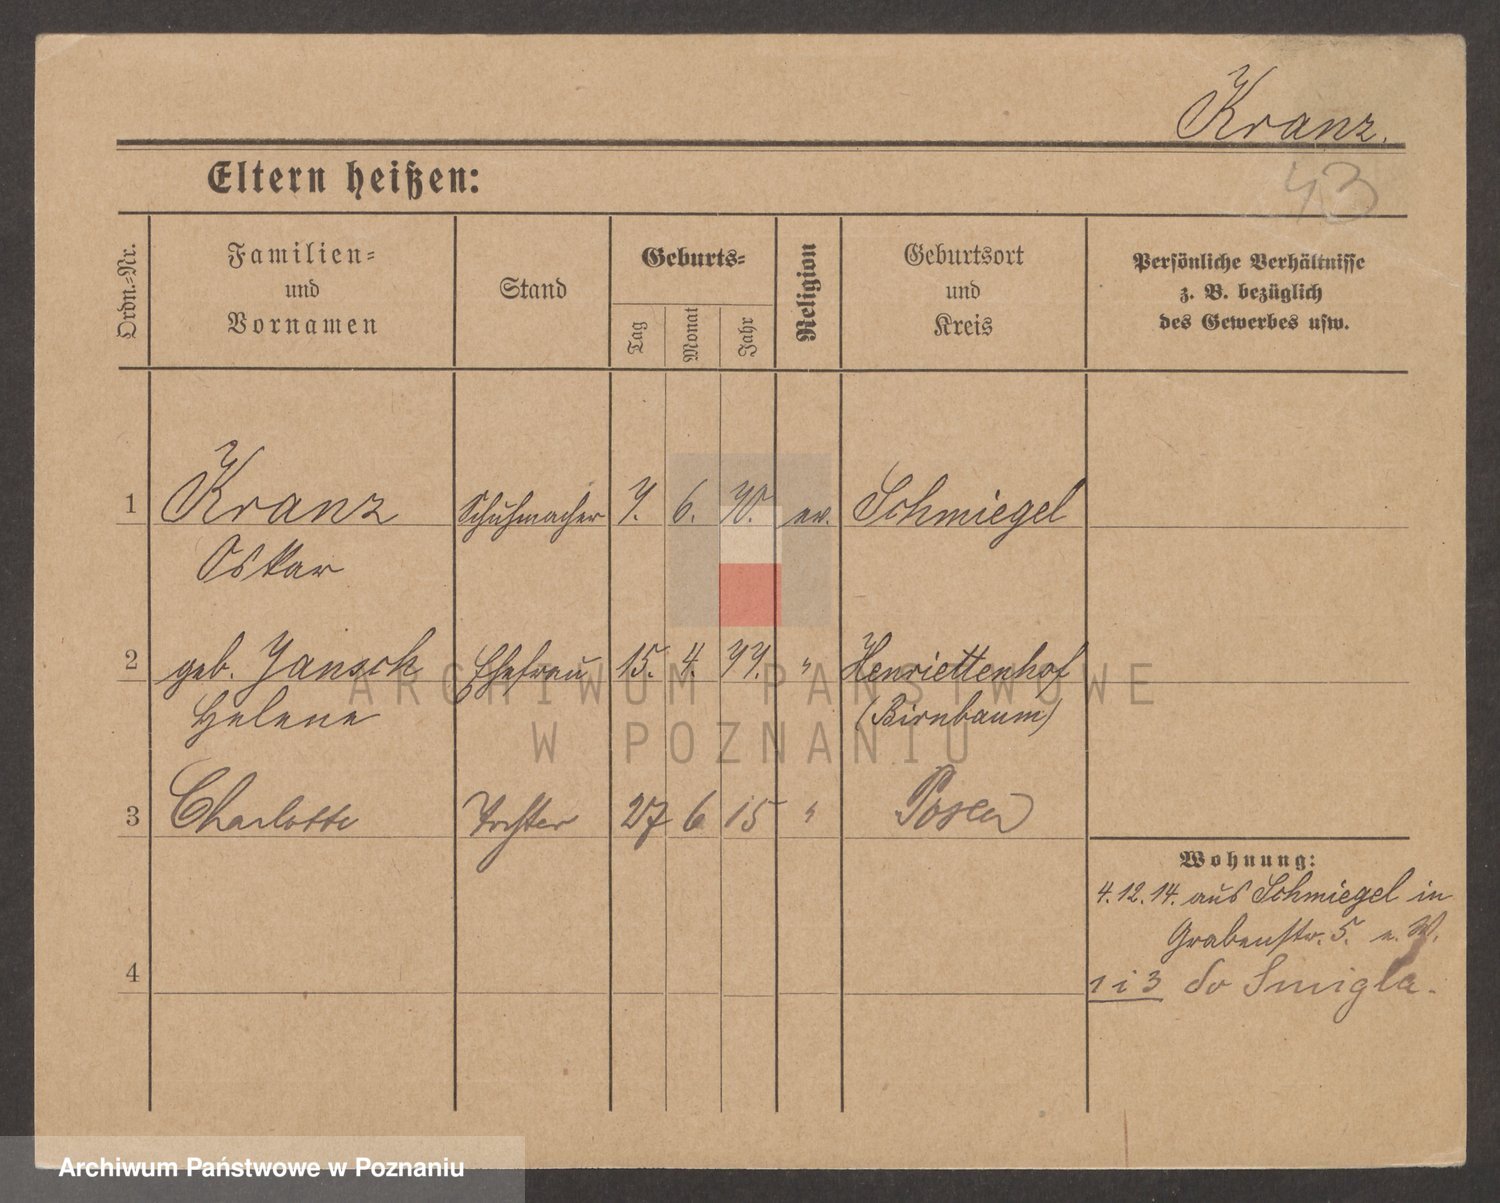 Kranz.
43
Eltern heißen:
Ordn.=Nr.
Familien=
und
Vornamen
Stand
Geburts=
Tag
Monat
Jahr
Religion
Geburtsort
und
Kreis
Persönliche Verhältnisse
z. B. bezüglich
des Gewerbes usw.
1 Kranz Schuhmacher 7. 6. 70. ev. Schmiegel
Oskar
2 geb. Ehefrau 15. 4. 77. " Henriettenhof
Helene (Birnbaum)
3 Charlotte Tochter 27 6 15 " Posen
Wohnung:
4.12.14. aus Schmiegel in
Grabenstr. 5. e. W.
4
1 i 3 do Smigla.
ARCHIWUM PAŃSTWOWE
W POZNANIU
Archiwum Państwowe w Poznaniu